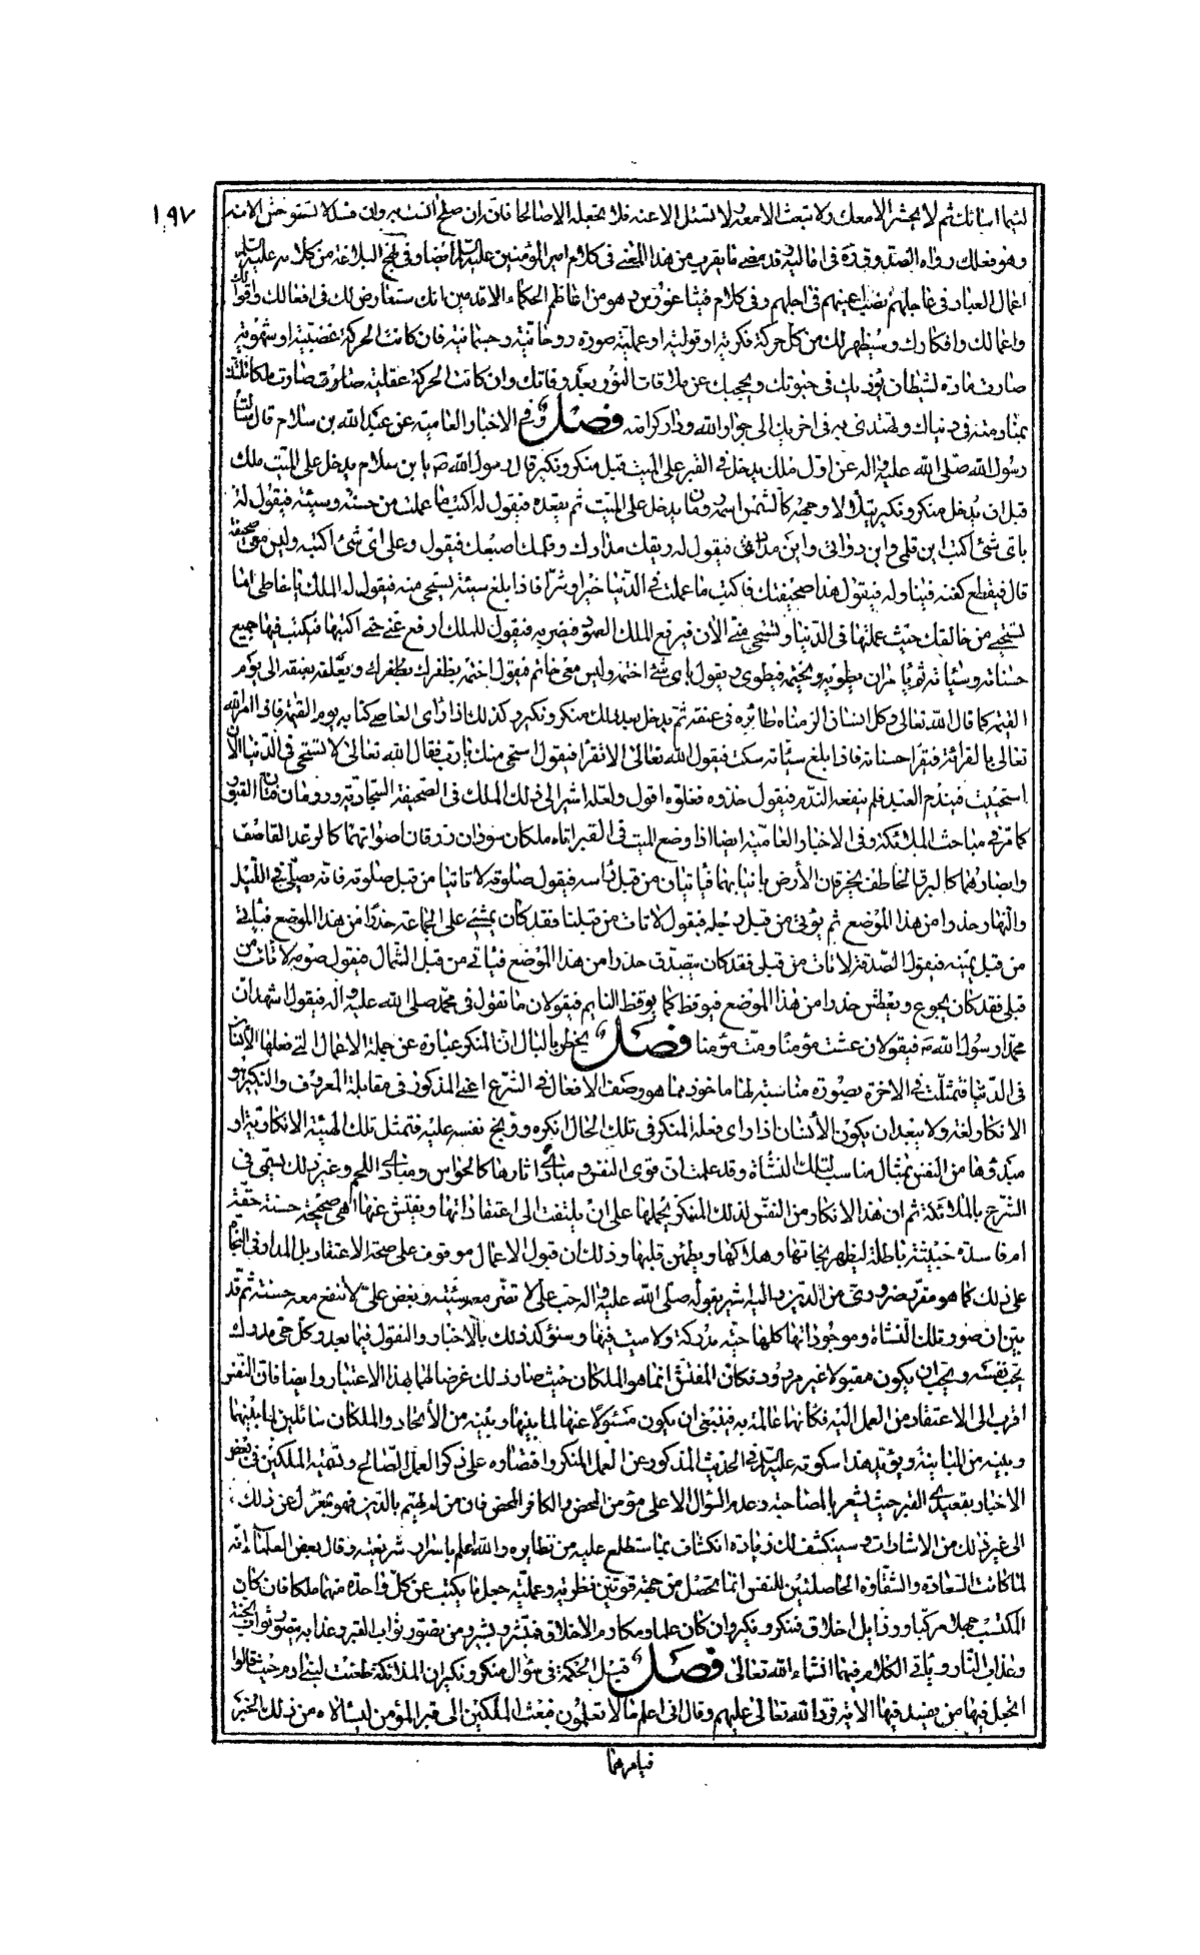 ١٩٧
لئيما اسائك ثم لا يحشر الا معك ولا تبعث الا معه ولا تسئل الا عنه فلا تجعله الا صالحا فانه ان صلح انست به وان فسد لا تستوحش الا منه
وهو فعلك رواه الصدوق ره في اماليه و قد مضى ما يقرب من هذا المعنى في كلام امير المؤمنين عليه السلم ايضا وفي نهج البلاغة من كلامه عليه السلم
اعمال العباد في عاجلهم نصب اعينهم في اجلهم وفي كلام فيثاغورس وهو من اعاظم الحكماء الاقدمين انك ستعارض لك في افعالك واقوالك
واعمالك وافكارك وسيظهر لك من كل حركة فكرية او قولية او عملية صورة روحانية وجسمانية فان كانت الحركة غضبية او شهوية
صارت مادة لشيطان يؤذيك في حيوتك ويحجبك عن ملاقات النور بعد وفاتك وان كانت الحركة عقلية صارت ملكا تلتذ
بمنادمته في دنياك وتهتدى به في اخريك الى جوار الله ودار كرامته فصل وفي الاخبار العامية عن عبد الله بن سلام قال سألت
رسول الله صلى الله عليه واله عن اول ملك يدخل في القبر على الميت قبل منكر ونكير قال رسول الله ص يا بن سلام يدخل على الميت ملك
قبل ان يدخل منكر ونكير يتلألأ وجهه كالشمس اسمه رومان يدخل على الميت ثم يقعده فيقول له اكتب ما عملت من حسنة وسيئة فيقول له
باى شئ اكتب اين قلمى واين دواتى واين مدادى فيقول له ريقك مدادك وقلمك اصبعك فيقول وعلى اى شئ اكتبه وليس معى صحيفة
قال فيقطع كفنه فيناوله فيقول هذا صحيفتك فاكتب ما عملت في الدنيا خيرا وشرا فاذا بلغ سيئة يستحى منه فيقول له الملك يا خاطى اما
تستحيى من خالقك حيث عملتها في الدنيا وتستحى منى الان فيرفع الملك العمود فيضربه فيقول للملك ارفع عنى حتى اكتبها فيكتب فيها جميع
حسناته وسيئاته ثم يامر ان يطويه ويختمه فيطوى ويقول باى شئ اختمه وليس معى خاتم فيقول اختمه بظفرك ويعلقه بعنقه الى يوم
القيمة كما قال الله تعالى وكل انسان الزمناه طائره في عنقه ثم يدخل بعد ذلك منكر ونكير وكذلك اذا راى العاصى كتابه يوم القيمة فاذا امر الله
تعالى بالقرائة فيقرا حسناته فاذا بلغ سيئاته سكت فيقول الله تعالى الا تقرا فيقول استحى منك يا رب فقال الله تعالى لا تستحى في الدنيا الان
استحييت فيندم العبد فلم ينفعه الندم فيقول خذوه فغلوه اقول ولعله اشير الى ذلك الملك في الصحيفة السجادية ورومان فتان القبور
كما مر في مباحث الملائكة وفي الاخبار العامية ايضا اذا وضع الميت في القبر اتاه ملكان سودان زرقان اصواتهما كالرعد القاصف
وابصارهما كالبرق الخاطف يخرقان الأرض بانيابهما فياتيان من قبل رأسه فيقول صلوته لا تاتيا من قبل صلوته فانه يصلى في الليل
والنهار حذرا من هذا الموضع ثم يؤتى من قبل رجله فيقول لا تات من قبلنا فقد كان يمشى على الجماعة حذرا من هذا الموضع فيأتى
من قبل يمينه فيقول الصدقة لا تات من قبلى فقد كان يتصدق حذرا من هذا الموضع فياتى من قبل الشمال فيقول صومه لا تات من
قبلى فقد كان يجوع ويعطش حذرا من هذا الموضع فيوقظ كما يوقظ النايم فيقولان ما تقول في محمد صلى الله عليه واله فيقول اشهد ان
محمدا رسول الله ص فيقولان عشت مؤمنا ومت مؤمنا فصل يخطر بالبال ان المنكر عبارة عن جملة الاعمال التى فعلها الأنسان
في الدنيا فتمثلت في الاخرة بصورة مناسبة لها ماخوذ مما هو وصف الافعال في الشرع اعنى المذكور في مقابلة المعروف والنكير هو
الانكار لغة ولا يبعد ان يكون الأنسان اذا راى فعله المنكر في تلك الحال انكره ووبخ نفسه عليه فتمثل تلك الهيئة الانكارية او
مبدؤها من النفس بمثال مناسب لتلك النشأة وقد علمت ان قوى النفس ومبادى اثارها كالحواس ومبادى اللمم وغير ذلك يسمى في
الشرع بالملائكة ثم ان هذا الانكار من النفس لذلك المنكر يحملها على ان يلتفت الى اعتقاداتها ويفتش عنها اهى صحيحة حسنة حقة
ام فاسدة خبيثة باطلة ليظهر نجاتها وهلاكها ويطمئن قلبها وذلك ان قبول الاعمال موقوف على صحة الاعتقاد بل المدار في النجاة
على ذلك كما هو مقرر ضرورى من الدين واليه اشير بقوله صلى الله عليه واله حب على لا تضر معه سيئة وبغض على لا تنفع معه حسنة ثم قد
تبين ان صور تلك النشأة وموجوداتها كلها حية مدركة ولا ميت فيها وسنؤكد ذلك بالاخبار والنقول فيما بعد وكل حى مدرك
يحب نفسه ويحب ان يكون مقبولا غير مردود فكان المفتش انما هو الملكان حيث صار ذلك غرضا لهما بهذا الاعتبار وايضا فان النفس
اقرب الى الاعتقاد من العمل اليه فكانها عالمة به فينبغى ان يكون مسئولا عنها لما بينها وبينه من الأتحاد والملكان سائلين لما بينهما
وبينه من المباينة ويؤيد هذا سكوته عليه السلم في الحديث المذكور عن العمل المنكر واقتصاره على ذكر العمل الصالح وتسمية الملكين في بعض
الاخبار بقعيدى القبر حيث يشعر بالمصاحبة وعدم السؤال الا على مؤمن المحض والكافر المحض فان من لم يهتم بالدين فهو بمعزل عن ذلك
الى غير ذلك من الاشارات وسينكشف لك زيادة انكشاف بما ستطلع عليه من نظايره والله اعلم باسرار شريعته وقال بعض العلماء انه
لما كانت السعادة والشقاوة الحاصلتين للنفس انما يحصل من جهة قوتين نظرية وعملية جعل ما يكتسب عن كل واحدة منهما ملكا فان كان
المكتسب جهلا مركبا ورذايل اخلاق فمنكر ونكير وان كان علما ومكارم الاخلاق فمبشر وبشير ومن يتصور ثواب القبر وعذابه يتصور ثواب الجنة
وعذاب النار وياتى الكلام فيهما انشاء الله تعالى فصل قيل الحكمة في سؤال منكر ونكير ان الملائكة طعنت لبنى ادم حيث قالوا
اتجعل فيها من يفسد فيها الاية فرد الله تعالى عليهم وقال انى اعلم ما لا تعلمون فبعث الملكين الى قبر المؤمن ليسألاه من ذلك الخبر
فيامرهما